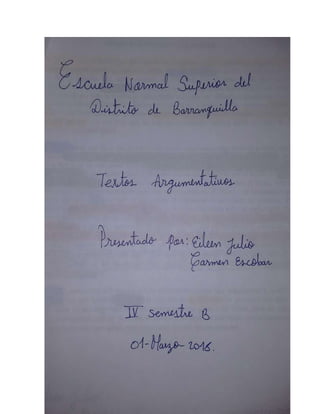 Escuela Normal Superior del
Distrito de Barranquilla
Textos Argumentativos
Presentado por: Eileen Julio
Carmen Escobar
IV semestre B
01-Marzo-2016.